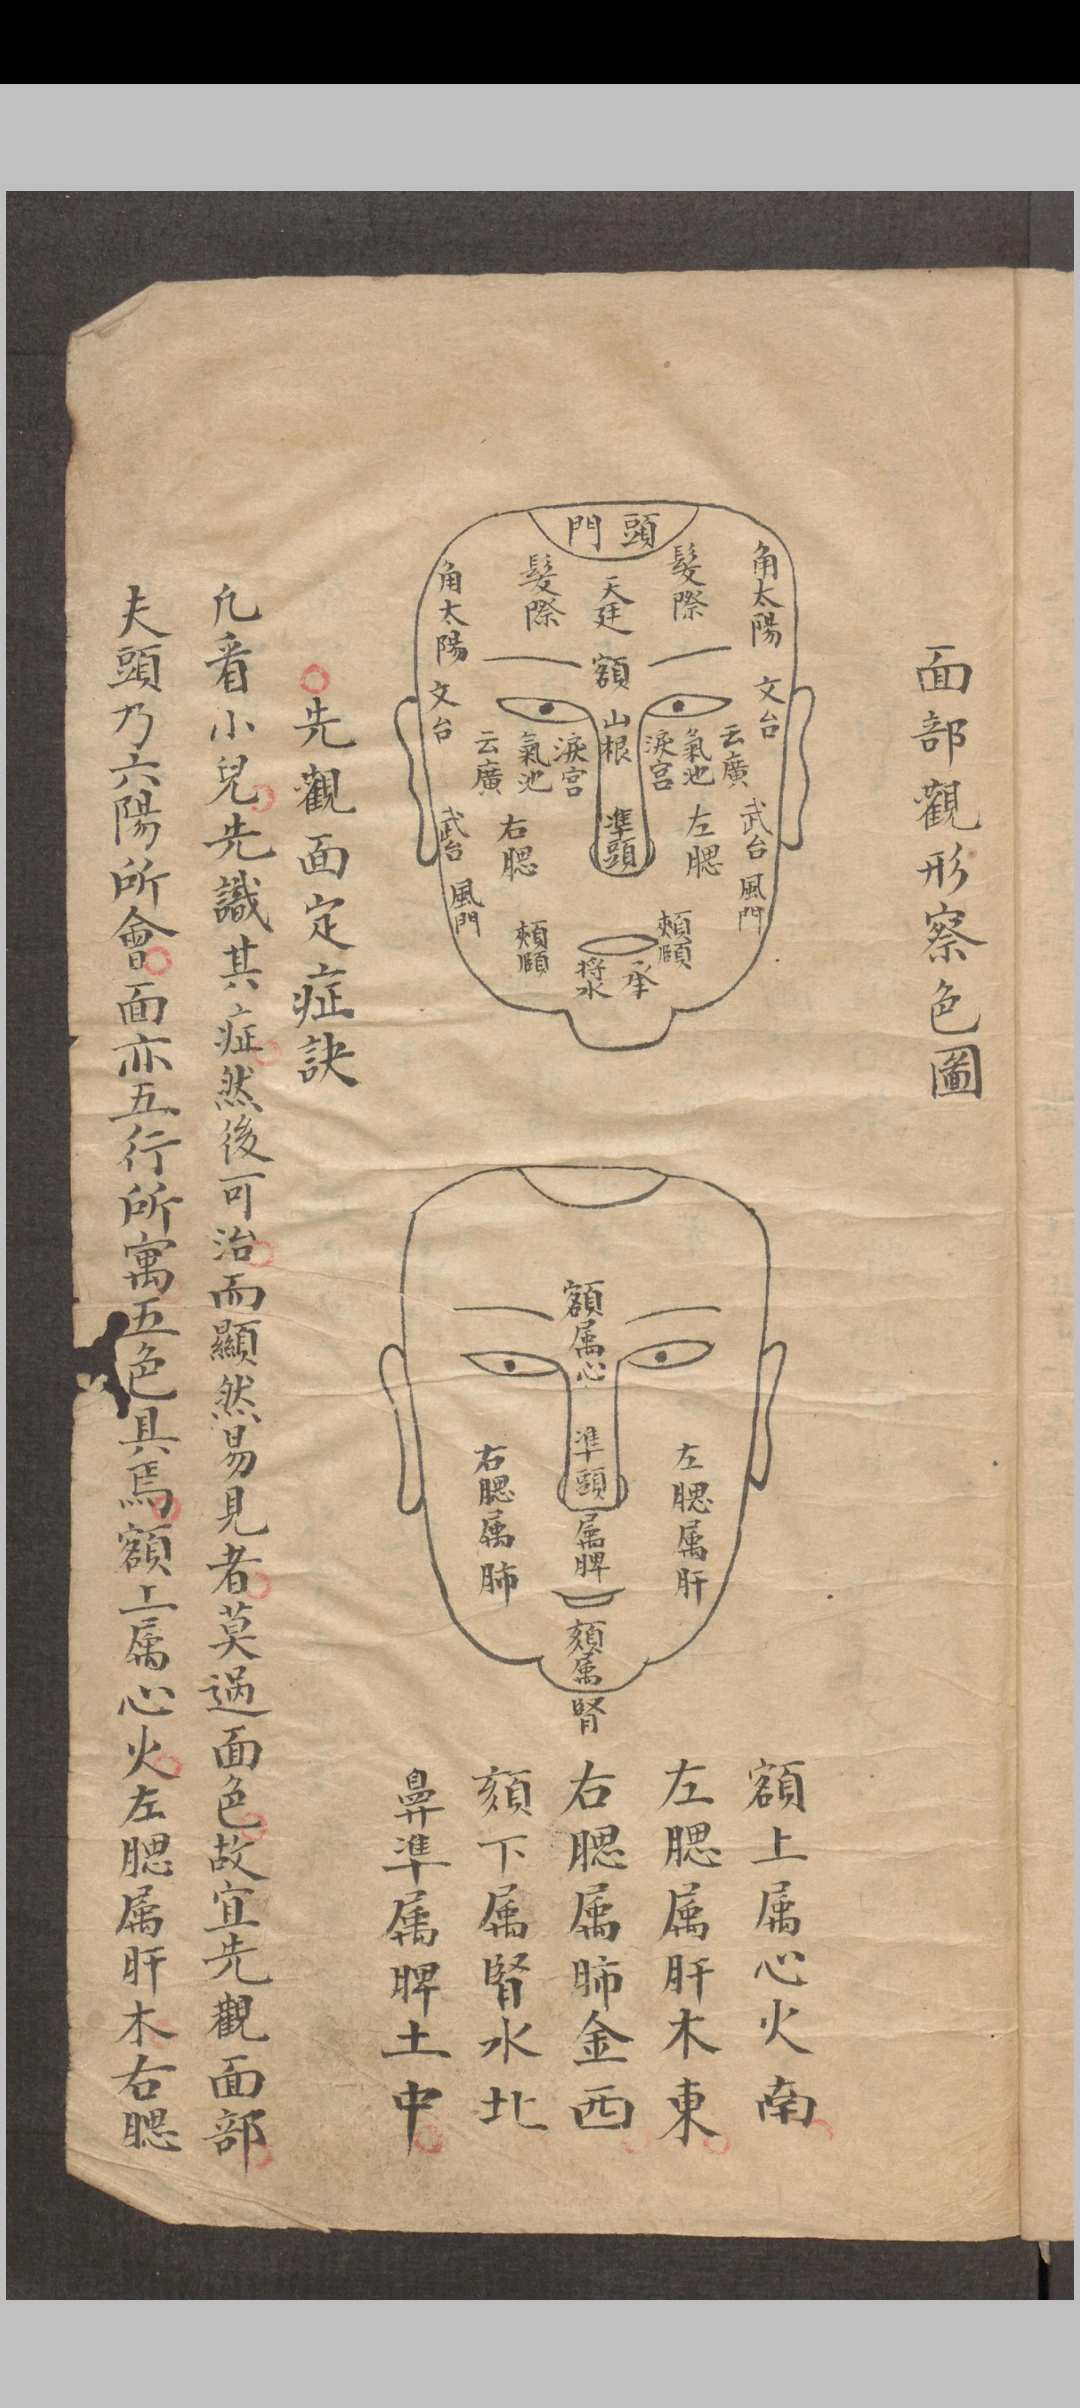 面部觀形察色圖
門頭
髮際
髮際
天廷
角太陽
角太陽
額
文台
文台
山根
淚宮
淚宮
氣池
氣池
云廣
云廣
準頭
左腮
右腮
武台
武台
風門
風門
頰頤
頰頤
承
將水
額属心
準頭属脾
左腮属肝
右腮属肺
頦属腎
額上属心火南
左腮属肝木東
右腮属肺金西
頦下属腎水北
鼻準属脾土中
先觀面定症訣
凢看小兒先識其症然後可治而顯然易見者莫過面色故宜先觀面部
夫頭乃六陽所會面亦五行所寓五色具焉額上属心火左腮属肝木右腮